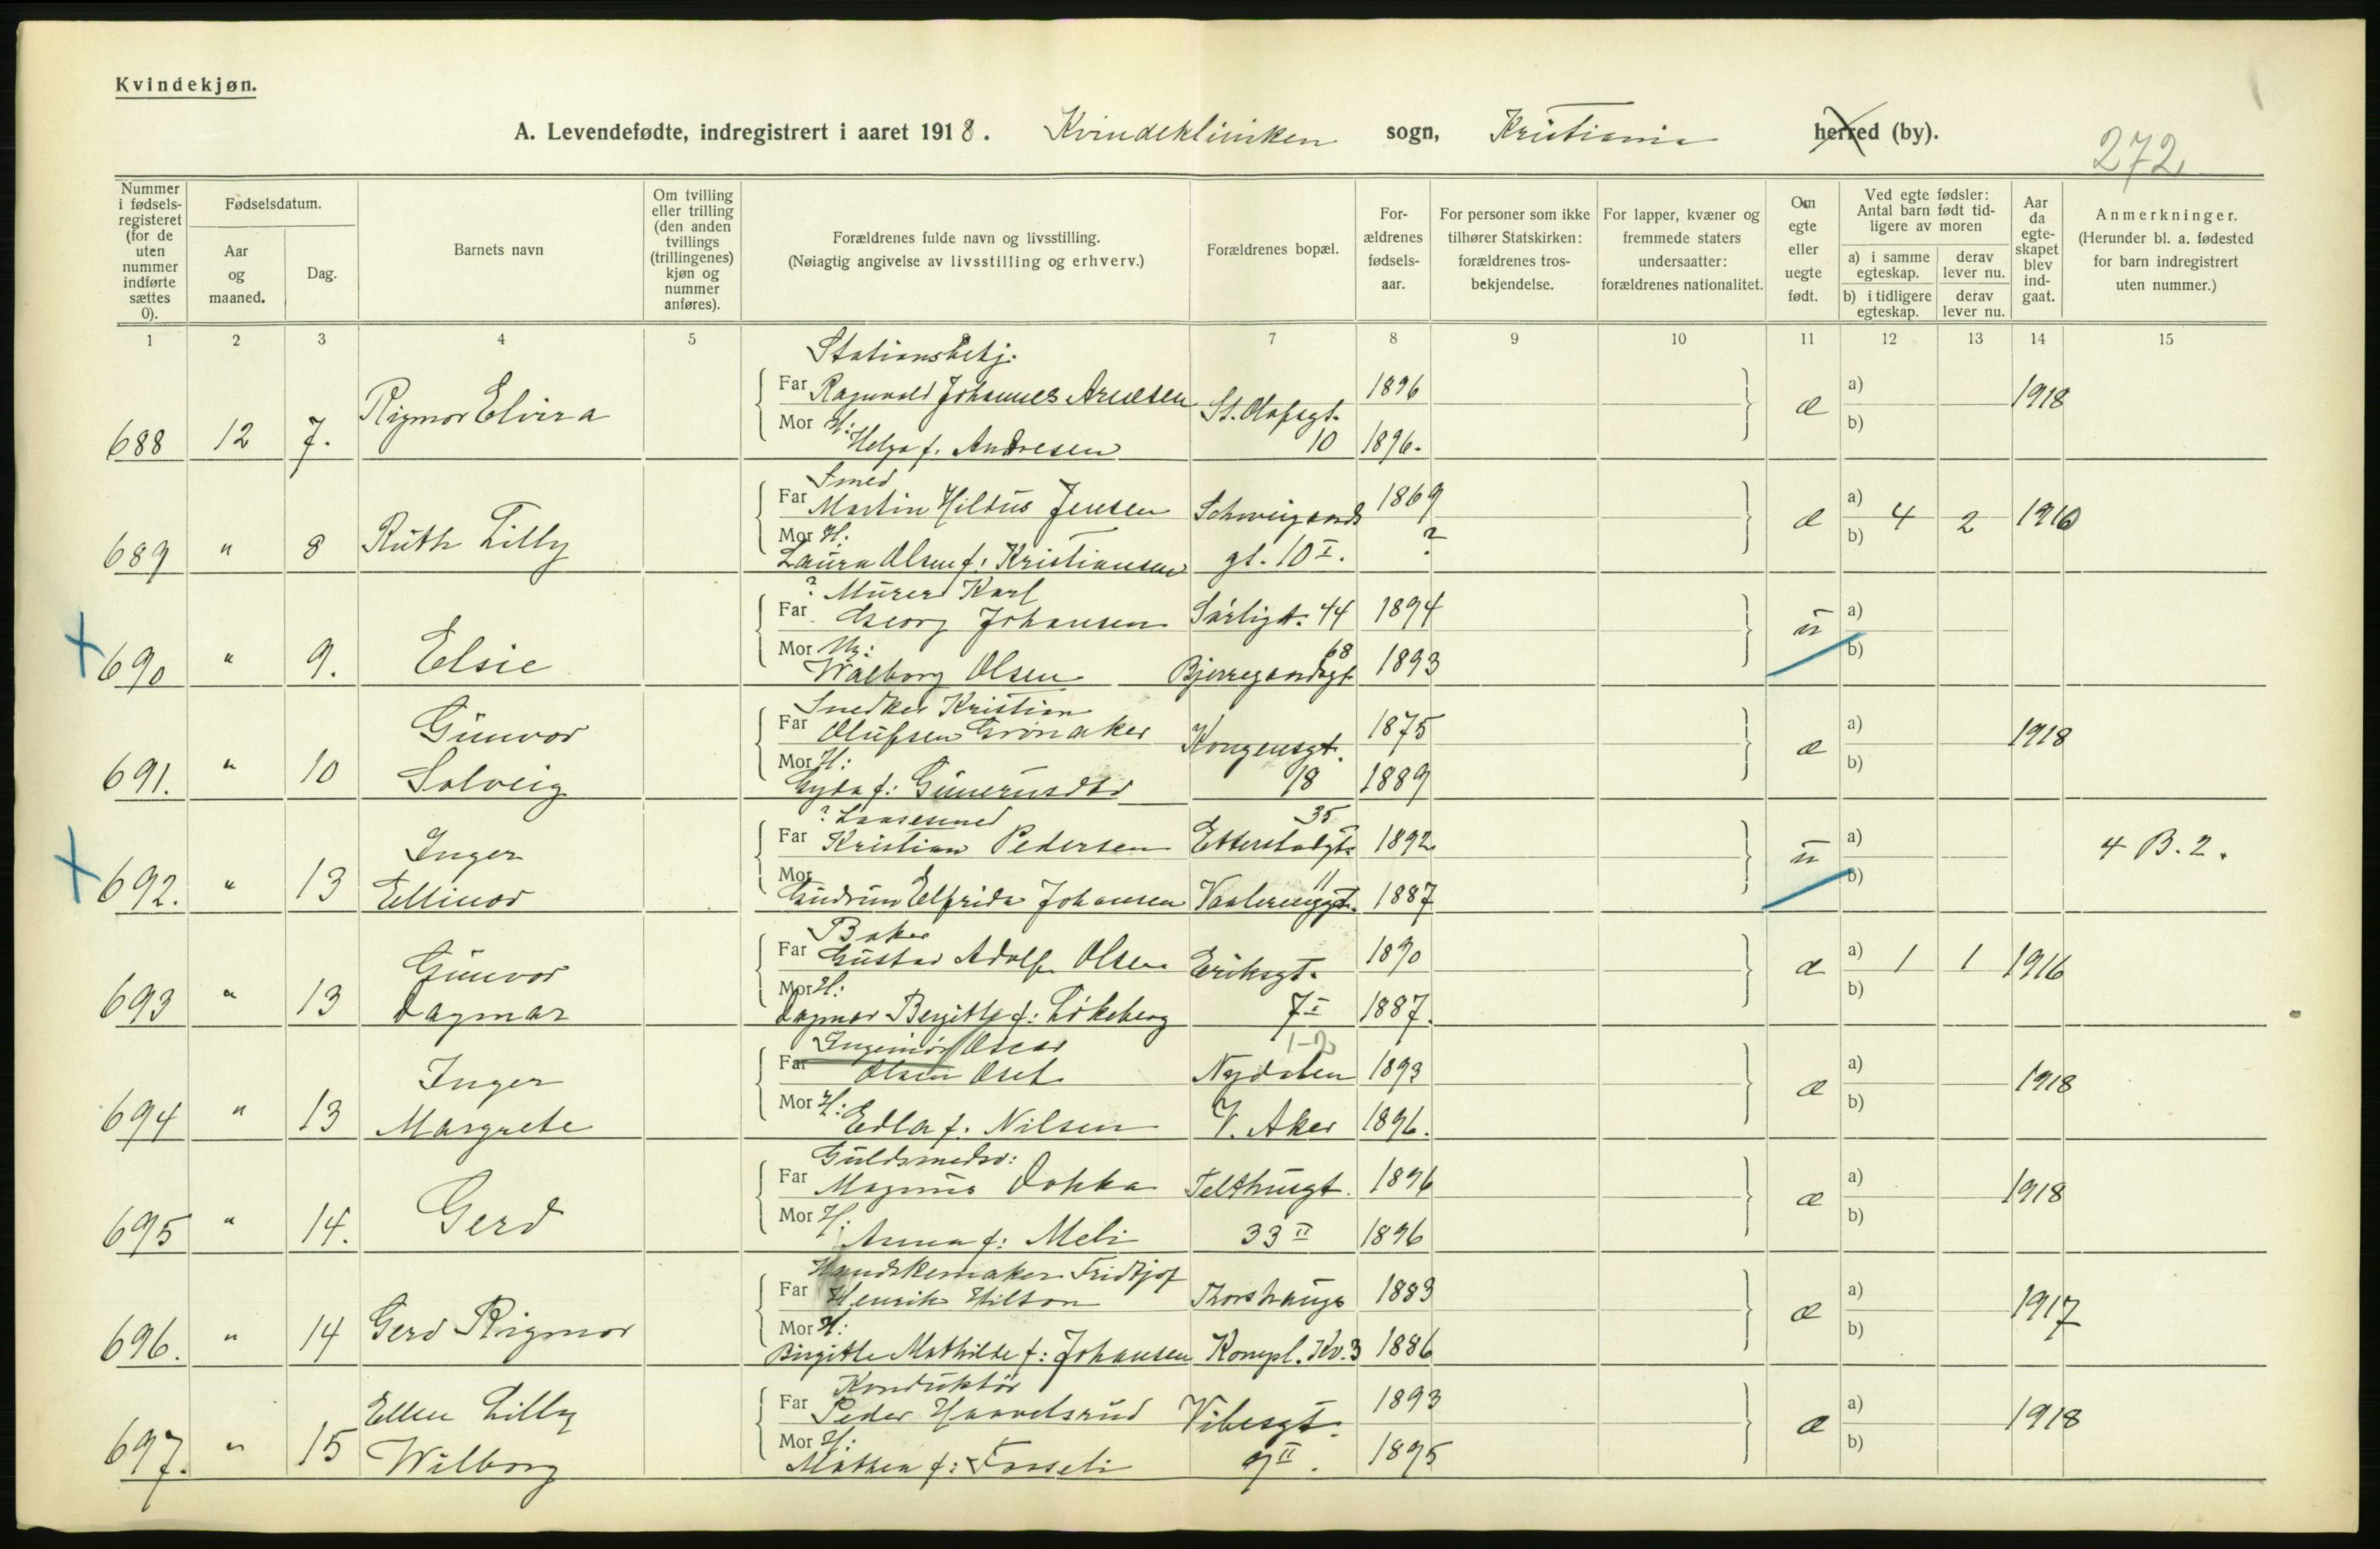 Kvindekjøn.
A. Levendefødte, indregistrert i aaret 1918. Kvindekliniken sogn, Kristiania herred (by).
272
Nummer i fødsels-registeret (for de uten nummer indførte sættes 0).
Fødselsdatum.
Aar og maaned.
Dag.
Barnets navn
Om tvilling eller trilling (den anden tvillings (trillingenes) kjøn og nummer anføres).
Forældrenes fulde navn og livsstilling. (Nøiagtig angivelse av livsstilling og erhverv.)
Forældrenes bopæl.
For-ældrenes fødsels-aar.
For personer som ikke tilhører Statskirken: forældrenes tros-bekjendelse.
For lapper, kvæner og fremmede staters undersaatter: forældrenes nationalitet.
Om egte eller uegte født.
Ved egte fødsler: Antal barn født tid-ligere av moren
a) i samme egteskap.
derav lever nu.
b) i tidligere egteskap.
derav lever nu.
Aar da egte-skapet blev ind-gaat.
Anmerkninger. (Herunder bl. a. fødested for barn indregistrert uten nummer.)
1 2 3 4 5 7 8 9 10 11 12 13 14 15
Stationsbetj.
Far Ragnvald Johannes Arnesen 1896 a)
688 12 7. Rigmor Elvira St. Olafsgt. æ 1918
Mor H: Helga f. Andresen 10 1896. b)
Smed
Far Martin Hiltus Jensen Schweigaards 1869 a)
689 " 8 Ruth Lilly æ 4 2 1910
Mor H: ? b)
Laura Olsen f: Kristiansen gt. 10 I.
? Murer Karl
Far Georg Johansen Sarligt. 44 1894 a)
+ 690 " 9. Elsie ü
Mor Ug: Walborg Olsen Bjerregaardsgt. 68 1893 b)
Snedker Kristian
Far Olufsen Grönaker 1875 a)
691. " 10 Gunvor Solveig Kongensgt. æ 1918
Mor H: Gyda f: 18 1889 b)
? Laasesmed 35
Far Kristian Pedersen Etterstadgt. 1892 a)
+ 692. " 13 Inger Ellinor ü 4 B. 2.
Mor Gudrun Elfrida Johansen Vaalerenggt. 11 1887 b)
Baker
Far Gustav Adolf Olsen Eriksgt. 1890 a) 1 1
693 " 13 Gunvor Dagmar æ 1916
Mor H: Dagmar Bergitte f: Lökeberg 7 I 1887. b)
Ingeniör Oscar 1-2
Far Olsen Oset Nydalen 1893 a)
694 " 13 Inger Margrete æ 1918
Mor H: Edla f. Nilsen V. Aker 1896. b)
Guldsmedsv:
Far Magnus Dokka Telthusgt. 1896 a)
695 " 14. Gerd æ 1918
Mor H. Anna f: Meli 33 II 1896 b)
Handskemaker Fridtjof
Far Henrik Hilton Torshaugs 1883 a)
696. " 14 Gerd Rigmor æ 1917
Mor H: Birgitte Mathilde f: Johansen Kompl. Kv. 3 1886 b)
Konduktör
Far Peder Haavelsrud Vibesgt. 1893 a)
697. " 15 Ellen Lilly Wilborg æ 1918
Mor H: Mathea f: Fosseli 9 II. 1895 b)